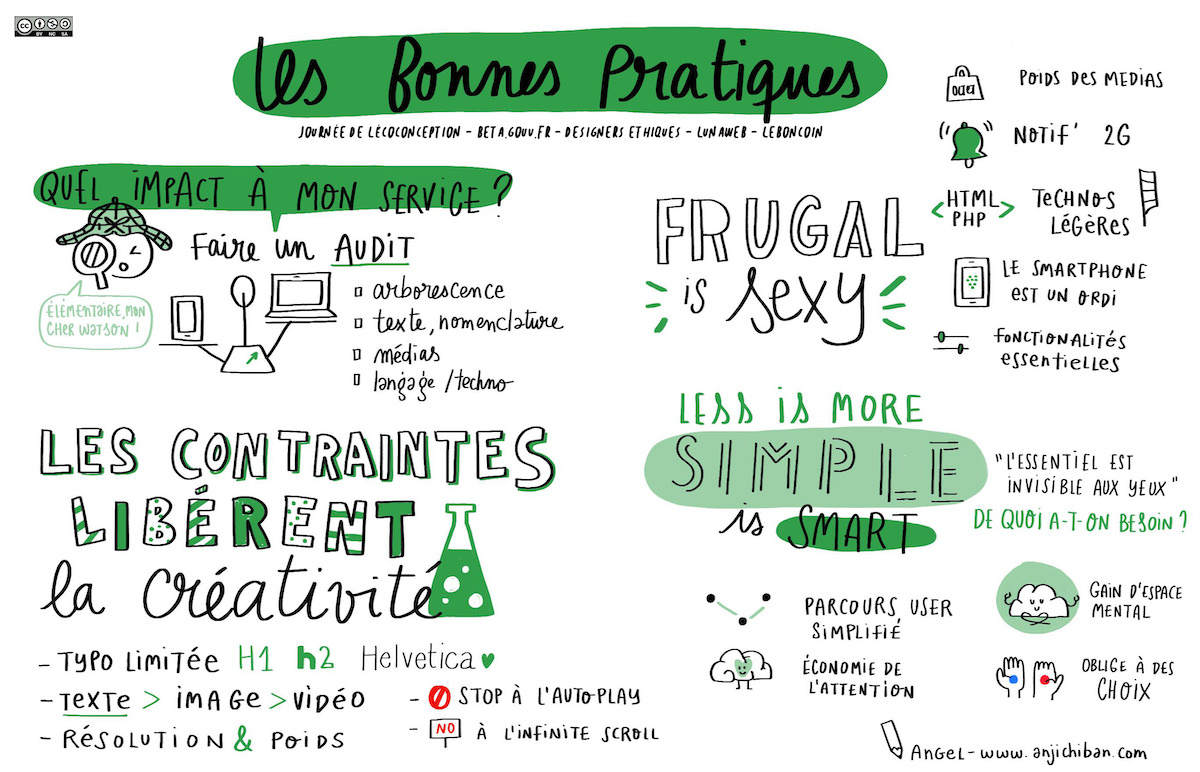 cc BY NC SA
Les Bonnes Pratiques
JOURNÉE DE L'ÉCOCONCEPTION - BETA.GOUV.FR - DESIGNERS ETHIQUES - LUNAWEB - LEBONCOIN
QUEL IMPACT À MON SERVICE ?
Faire un AUDIT
ÉLÉMENTAIRE, MON
CHER WATSON !
arborescence
texte, nomenclature
médias
langage / techno
LES CONTRAINTES
LIBÉRENT
la créativité
- TYPO LIMITÉE H1 h2 Helvetica
- TEXTE > IMAGE > VIDÉO
- RÉSOLUTION & POIDS
- STOP À L'AUTOPLAY
- NO À L'INFINITE SCROLL
FRUGAL
is sexy
POIDS DES MEDIAS
NOTIF' 2G
<HTML
PHP>
TECHNOS
LÉGÈRES
LE SMARTPHONE
EST UN ORDI
FONCTIONALITÉS
ESSENTIELLES
LESS IS MORE
SIMPLE
is SMART
"L'ESSENTIEL EST
INVISIBLE AUX YEUX"
DE QUOI A-T-ON BESOIN ?
PARCOURS USER
SIMPLIFIÉ
ÉCONOMIE DE
L'ATTENTION
GAIN D'ESPACE
MENTAL
OBLIGE À DES
CHOIX
ANGEL - www.anjichiban.com